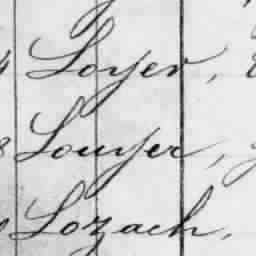 Loyer,
8 Louyer,
Lozach,